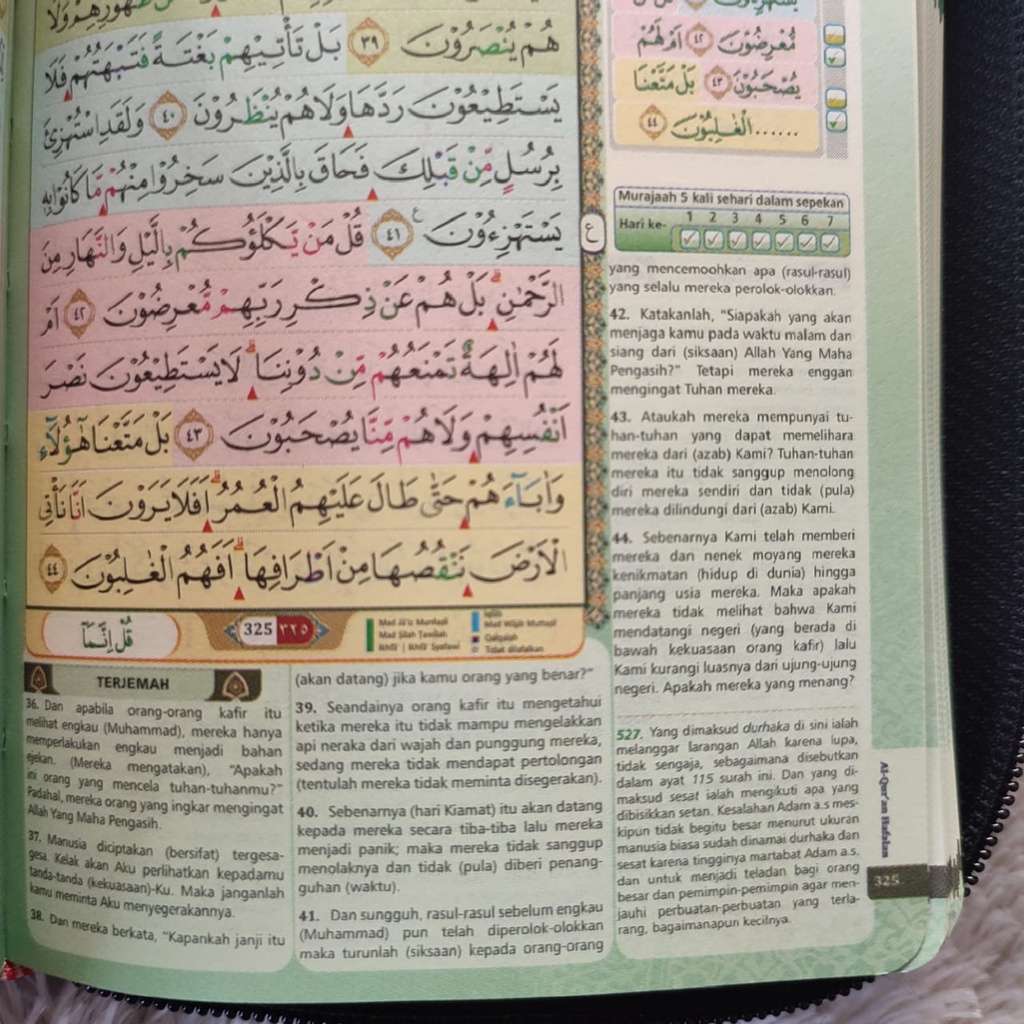 هُمْ يُنْصَرُوْنَ ٣٩ بَلْ تَأْتِيْهِمْ بَغْتَةً فَتَبْهَتُهُمْ فَلَا
يَسْتَطِيْعُوْنَ رَدَّهَا وَلَا هُمْ يُنْظَرُوْنَ ٤٠ وَلَقَدِ اسْتُهْزِئَ
بِرُسُلٍ مِّنْ قَبْلِكَ فَحَاقَ بِالَّذِيْنَ سَخِرُوْا مِنْهُمْ مَّا كَانُوْا بِهٖ
يَسْتَهْزِءُوْنَ ٤١ قُلْ مَنْ يَّكْلَؤُكُمْ بِالَّيْلِ وَالنَّهَارِ مِنَ
الرَّحْمٰنِۗ بَلْ هُمْ عَنْ ذِكْرِ رَبِّهِمْ مُّعْرِضُوْنَ ٤٢ اَمْ
لَهُمْ اٰلِهَةٌ تَمْنَعُهُمْ مِّنْ دُوْنِنَاۗ لَا يَسْتَطِيْعُوْنَ نَصْرَ
اَنْفُسِهِمْ وَلَا هُمْ مِّنَّا يُصْحَبُوْنَ ٤٣ بَلْ مَتَّعْنَا هٰٓؤُلَاۤءِ
وَاٰبَاۤءَهُمْ حَتّٰى طَالَ عَلَيْهِمُ الْعُمُرُۗ اَفَلَا يَرَوْنَ اَنَّا نَأْتِى
الْاَرْضَ نَنْقُصُهَا مِنْ اَطْرَافِهَاۗ اَفَهُمُ الْغٰلِبُوْنَ ٤٤
ع
مُّعْرِضُوْنَ ٤٢ اَمْ لَهُمْ
يُصْحَبُوْنَ ٤٣ بَلْ مَتَّعْنَا
...... الْغٰلِبُوْنَ ٤٤
Murajaah 5 kali sehari dalam sepekan
Hari ke- 1 2 3 4 5 6 7
قُلْ اِنَّمَآ
325 ٣٢٥
Mad Jā'iz Munfaṣil
Mad Ṣilah Ṭawīlah
Ikhfā' | Ikhfā' Syafawī
Iqlāb
Mad Wājib Muttaṣil
Qalqalah
Tidak dilafalkan
TERJEMAH
36. Dan apabila orang-orang kafir itu
melihat engkau (Muhammad), mereka hanya
memperlakukan engkau menjadi bahan
ejekan. (Mereka mengatakan), "Apakah
ini orang yang mencela tuhan-tuhanmu?"
Padahal, mereka orang yang ingkar mengingat
Allah Yang Maha Pengasih.
37. Manusia diciptakan (bersifat) tergesa-
gesa. Kelak akan Aku perlihatkan kepadamu
tanda-tanda (kekuasaan)-Ku. Maka janganlah
kamu meminta Aku menyegerakannya.
38. Dan mereka berkata, "Kapankah janji itu
(akan datang) jika kamu orang yang benar?"
39. Seandainya orang kafir itu mengetahui
ketika mereka itu tidak mampu mengelakkan
api neraka dari wajah dan punggung mereka,
sedang mereka tidak mendapat pertolongan
(tentulah mereka tidak meminta disegerakan).
40. Sebenarnya (hari Kiamat) itu akan datang
kepada mereka secara tiba-tiba lalu mereka
menjadi panik; maka mereka tidak sanggup
menolaknya dan tidak (pula) diberi penang-
guhan (waktu).
41. Dan sungguh, rasul-rasul sebelum engkau
(Muhammad) pun telah diperolok-olokkan
maka turunlah (siksaan) kepada orang-orang
yang mencemoohkan apa (rasul-rasul)
yang selalu mereka perolok-olokkan.
42. Katakanlah, "Siapakah yang akan
menjaga kamu pada waktu malam dan
siang dari (siksaan) Allah Yang Maha
Pengasih?" Tetapi mereka enggan
mengingat Tuhan mereka.
43. Ataukah mereka mempunyai tu-
han-tuhan yang dapat memelihara
mereka dari (azab) Kami? Tuhan-tuhan
mereka itu tidak sanggup menolong
diri mereka sendiri dan tidak (pula)
mereka dilindungi dari (azab) Kami.
44. Sebenarnya Kami telah memberi
mereka dan nenek moyang mereka
kenikmatan (hidup di dunia) hingga
panjang usia mereka. Maka apakah
mereka tidak melihat bahwa Kami
mendatangi negeri (yang berada di
bawah kekuasaan orang kafir) lalu
Kami kurangi luasnya dari ujung-ujung
negeri. Apakah mereka yang menang?
527. Yang dimaksud durhaka di sini ialah
melanggar larangan Allah karena lupa,
tidak sengaja, sebagaimana disebutkan
dalam ayat 115 surah ini. Dan yang di-
maksud sesat ialah mengikuti apa yang
dibisikkan setan. Kesalahan Adam a.s mes-
kipun tidak begitu besar menurut ukuran
manusia biasa sudah dinamai durhaka dan
sesat karena tingginya martabat Adam a.s.
dan untuk menjadi teladan bagi orang
besar dan pemimpin-pemimpin agar men-
jauhi perbuatan-perbuatan yang terla-
rang, bagaimanapun kecilnya.
Al-Qur'an Hafalan
325